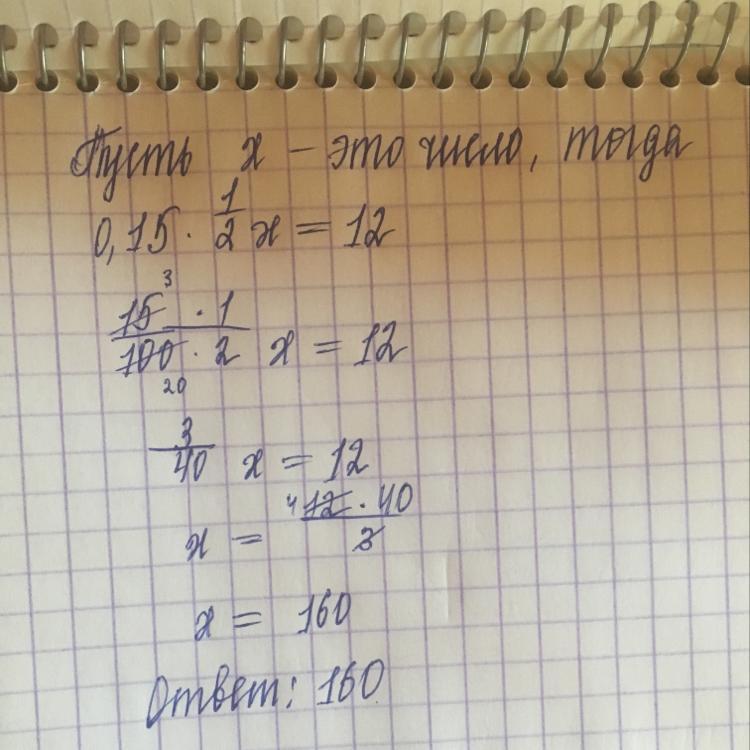 Пусть x – это число, тогда
0,15 · 1/2 x = 12
3
15 · 1 / 100 · 2 x = 12
20
3/40 x = 12
x = 4 12 · 40 / 3
x = 160
Ответ: 160